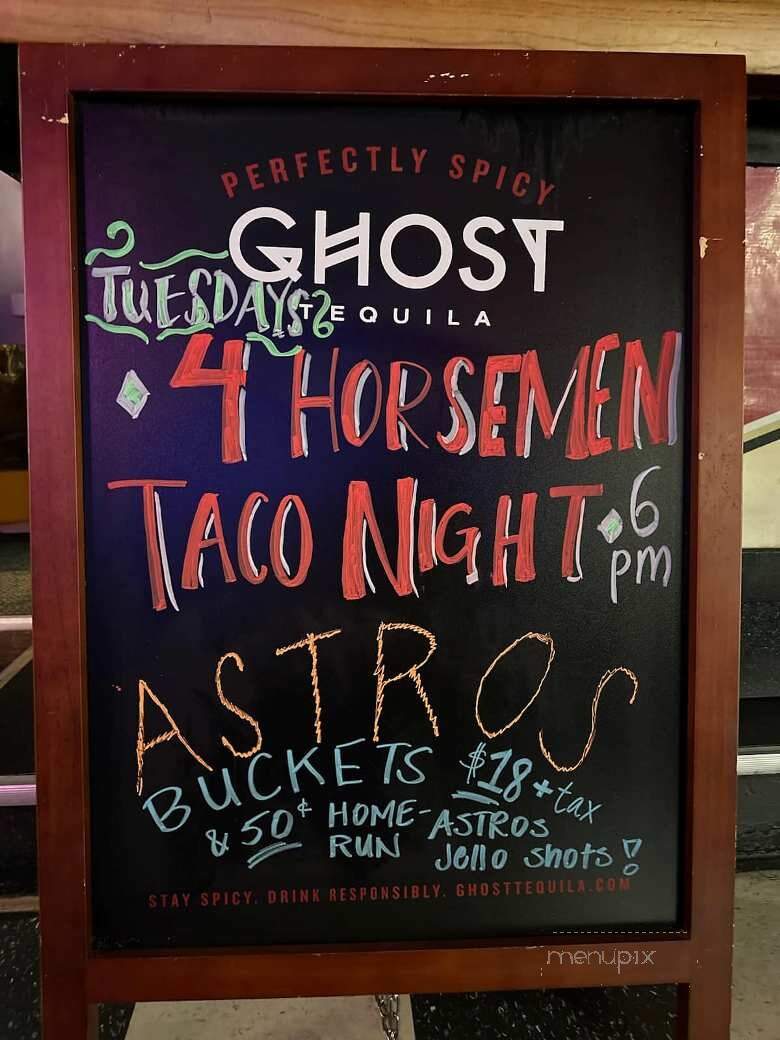 PERFECTLY SPICY
GHOST
TEQUILA
TUESDAYS
4 HORSEMEN
TACO NIGHT 6
pm
ASTROS
BUCKETS $18 + tax
& 50¢ HOME-RUN ASTROS Jello shots!
STAY SPICY. DRINK RESPONSIBLY. GHOSTTEQUILA.COM
menupix